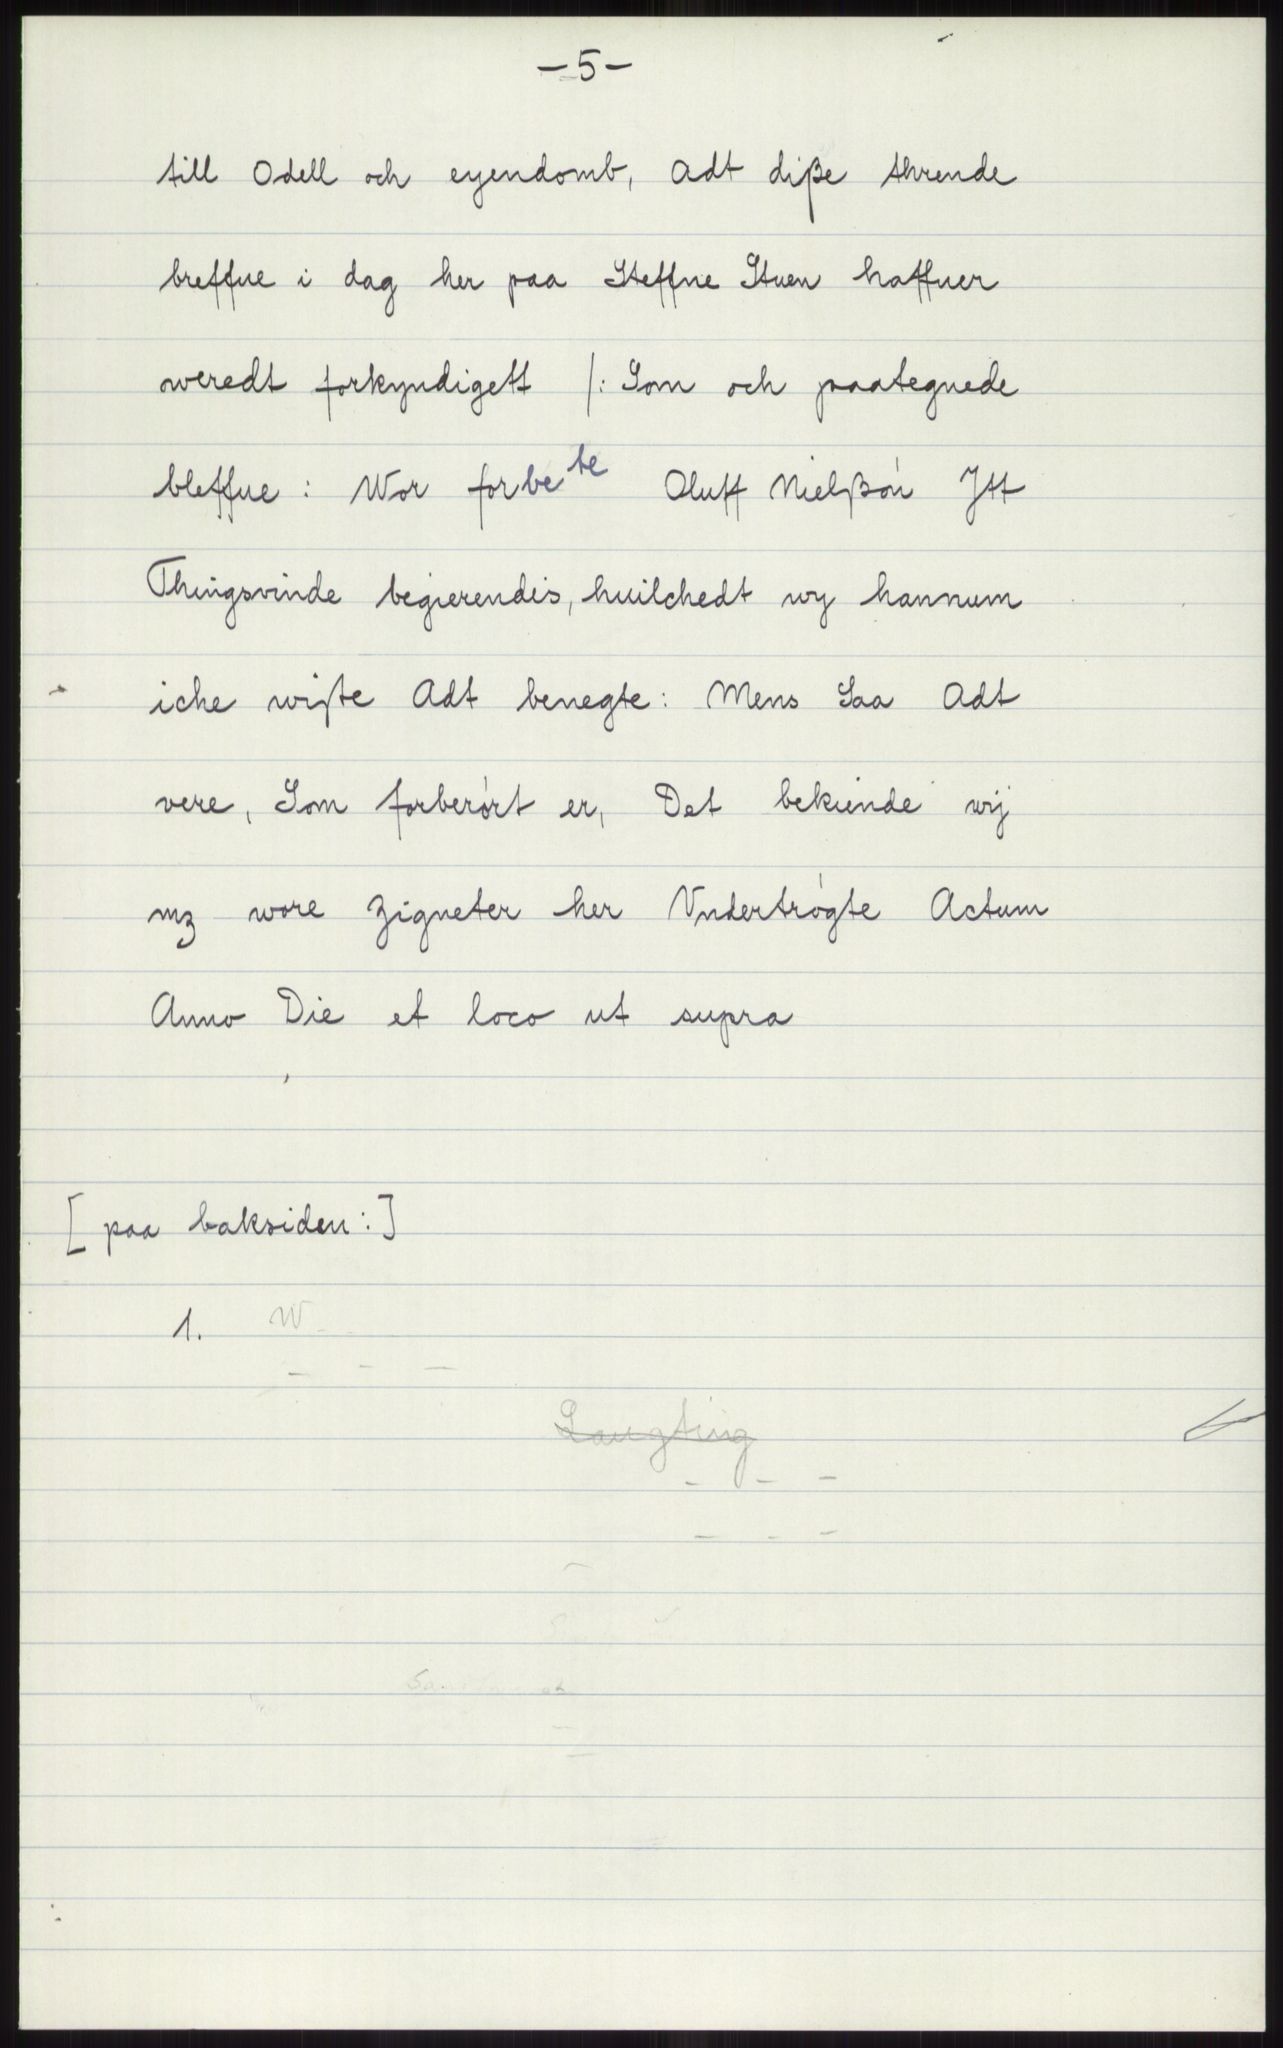 -5-
till Odell och eyendomb, Adt diße thrende
breffue i dag her paa Steffne Stuen haffuer
weredt forkyndigett /: Som och paategnede
bleffue : Wor forbete Oluff Nielßón Jtt
Thingsvinde begierendis, huilchedt wy hannum
iche wiste Adt benegte: Mens Saa Adt
vere, Som forberórt er, Det bekiende wij
mz wore Zigneter her Vndertrógte Actum
Anno Die et loco ut supra
[ paa baksiden : ]
1. W - -
- - -
Laugting
- - -
- - -